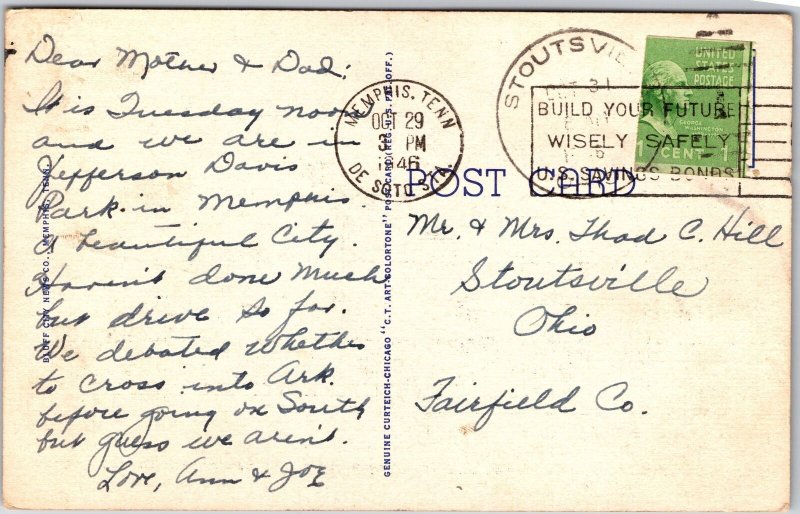 Dear Mother & Dad:
It is Tuesday noon
and we are in
Jefferson Davis
Park in Memphis.
A beautiful City.
Haven't done much
but drive so far.
We debated whether
to cross into Ark.
before going on South
but guess we aren't.
Love, Ann & Joe
BLUFF CITY NEWS CO., MEMPHIS, TENN.
GENUINE CURTEICH-CHICAGO "C.T. ART-COLORTONE" POST CARD (REG. U.S. PAT. OFF.)
MEMPHIS, TENN.
OCT 29
PM
1946
DE SOTO STA.
STOUTSVI
OCT 31
BUILD YOUR FUTURE
WISELY SAFELY
U.S. SAVINGS BONDS
UNITED
STATES
POSTAGE
GEORGE
WASHINGTON
1 CENT 1
POST CARD
Mr. & Mrs. Thad C. Hill
Stoutsville
Ohio
Fairfield Co.